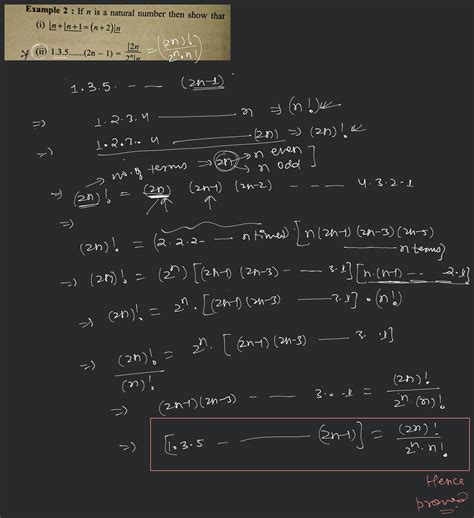 Example 2 : If n is a natural number then show that
(i) |n + |n+1 = (n + 2)|n
(ii) 1.3.5.......(2n – 1) = |2n / 2ⁿ|n = (2n)! / 2ⁿ.n!
1.3.5. - - - (2n-1)
⇒ 1.2.3.4 ——— n ⇒ (n!)
⇒ 1.2.3.4 ——— (2n) ⇒ (2n)!
no. of terms ⇒ 2n → n even
n odd ]
⇒ (2n)! = (2n) (2n-1) (2n-2) - - - - 4.3.2.1
⇒
(2n)! = (2.2.2 - - - n times) [n(2n-1)(2n-3)(2n-5)
——— n terms)
⇒ (2n)! = (2ⁿ) [(2n-1)(2n-3) - - - 3.1] [n.(n-1) - - - 2.1]
⇒ (2n)! = 2ⁿ. [(2n-1)(2n-3) ——— 3.1] . (n!)
⇒ (2n)! / (n)! = 2ⁿ. [(2n-1)(2n-3) ——— 3. 1]
⇒ (2n-1)(2n-3) - - - - 3.1 = (2n)! / 2ⁿ.(n)!
⇒ [1.3.5 - ——— (2n-1)] = (2n)! / 2ⁿ.n!
Hence
proved